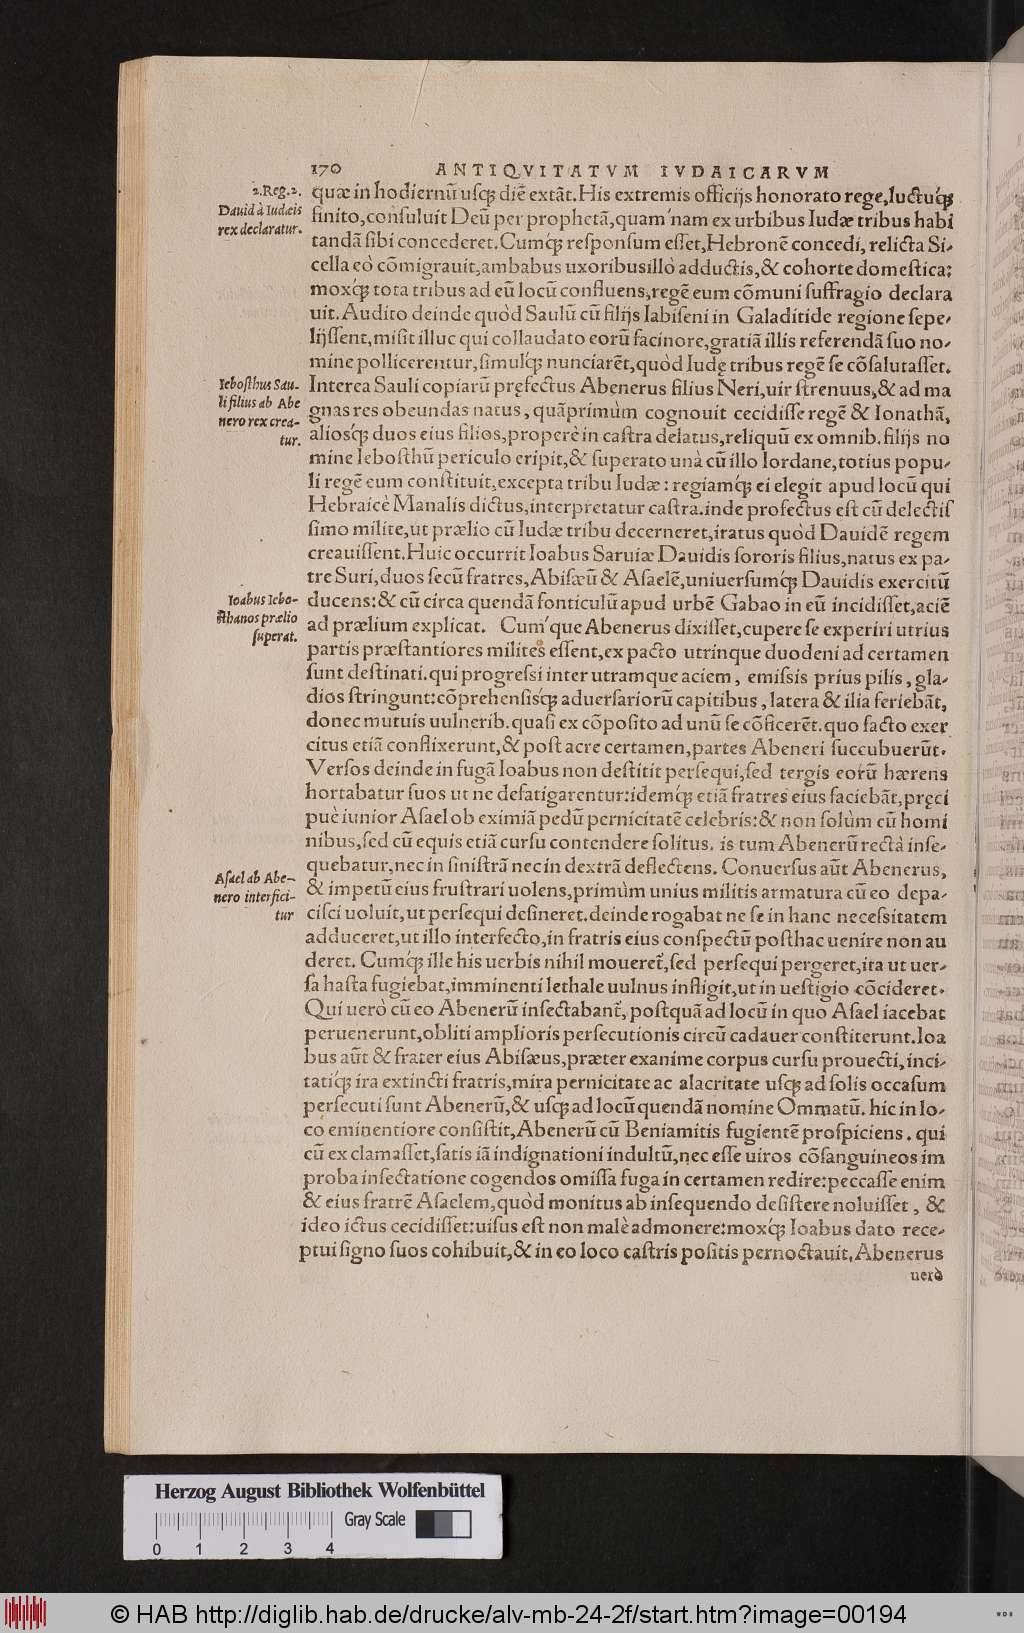 170 ANTIQVITATVM IVDAICARVM
2.Reg.2.
Dauid à Iudæis
rex declaratur.
quæ in hodiernũ usq́; diẽ extãt. His extremis officijs honorato rege, luctuq́;
finito, consuluit Deũ per prophetã, quam'nam ex urbibus Iudæ tribus habi
tandã sibi concederet. Cumq́; responsum esset, Hebronẽ concedi, relicta Si-
cella eò cõmigrauit, ambabus uxoribus illò adductis, & cohorte domestica:
moxq́; tota tribus ad eũ locũ confluens, regẽ eum cõmuni suffragio declara
uit. Audito deinde quòd Saulũ cũ filijs Iabiseni in Galaditide regione sepe-
lijssent, misit illuc qui collaudato eorũ facinore, gratiã illis referendã suo no-
mine pollicerentur, simulq́; nunciarẽt, quòd Iudę tribus regẽ se cõsalutasset.
Iebosthus Sau-
li filius ab Abe
nero rex crea-
tur.
Interea Sauli copiarũ pręfectus Abenerus filius Neri, uir strenuus, & ad ma
gnas res obeundas natus, quãprimùm cognouit cecidisse regẽ & Ionathã,
aliosq́; duos eius filios, properè in castra delatus, reliquũ ex omnib. filijs no
mine Iebosthũ periculo eripit, & superato unà cũ illo Iordane, totius popu-
li regẽ eum constituit, excepta tribu Iudæ: regiamq́; ei elegit apud locũ qui
Hebraicè Manalis dictus, interpretatur castra. inde profectus est cũ delectis
simo milite, ut prælio cũ Iudæ tribu decerneret, iratus quòd Dauidẽ regem
creauissent. Huic occurrit Ioabus Saruiæ Dauidis sororis filius, natus ex pa-
tre Suri, duos secũ fratres, Abisæũ & Asaelẽ, uniuersumq́; Dauidis exercitũ
Ioabus Iebo-
sthanos prælio
superat.
ducens: & cũ circa quendã fonticulũ apud urbẽ Gabao in eũ incidisset, aciẽ
ad prælium explicat. Cum'que Abenerus dixisset, cupere se experiri utrius
partis præstantiores milites essent, ex pacto utrinque duodeni ad certamen
sunt destinati. qui progressi inter utramque aciem, emissis prius pilis, gla-
dios stringunt: cõprehensisq́; aduersariorũ capitibus, latera & ilia feriebãt,
donec mutuis uulnerib. quasi ex cõposito ad unũ se cõficerẽt. quo facto exer
citus etiã conflixerunt, & post acre certamen, partes Abeneri succubuerũt.
Versos deinde in fugã Ioabus non destitit persequi, sed tergis eorũ hærens
hortabatur suos ut ne defatigarentur: idemq́; etiã fratres eius faciebãt, pręci
puè iunior Asael ob eximiã pedũ pernicitatẽ celebris: & non solùm cũ homi
nibus, sed cũ equis etiã cursu contendere solitus. is tum Abenerũ rectà inse-
Asael ab Abe-
nero interfici-
tur
quebatur, nec in sinistrã nec in dextrã deflectens. Conuersus aũt Abenerus,
& impetũ eius frustrari uolens, primùm unius militis armatura cũ eo depa-
cisci uoluit, ut persequi desineret. deinde rogabat ne se in hanc necessitatem
adduceret, ut illo interfecto, in fratris eius conspectũ posthac uenire non au
deret. Cumq́; ille his uerbis nihil mouereť, sed persequi pergeret, ita ut uer-
sa hasta fugiebat, imminenti lethale uulnus infligit, ut in uestigio cõcideret.
Qui uerò cũ eo Abenerũ insectabanť, postquã ad locũ in quo Asael iacebat
peruenerunt, obliti amplioris persecutionis circũ cadauer constiterunt. Ioa
bus aũt & frater eius Abisæus, præter exanime corpus cursu prouecti, inci-
tatiq́; ira extincti fratris, mira pernicitate ac alacritate usq́; ad solis occasum
persecuti sunt Abenerũ, & usq́; ad locũ quendã nomine Ommatũ. hic in lo-
co eminentiore consistit, Abenerũ cũ Beniamitis fugientẽ prospiciens. qui
cũ exclamasset, satis iã indignationi indultũ, nec esse uiros cõsanguineos im
proba insectatione cogendos omissa fuga in certamen redire: peccasse enim
& eius fratrẽ Asaelem, quòd monitus ab insequendo desistere noluisset, &
ideo ictus cecidisset: uisus est non malè admonere: moxq́; Ioabus dato rece-
ptui signo suos cohibuit, & in eo loco castris positis pernoctauit. Abenerus
uerò
Herzog August Bibliothek Wolfenbüttel
Gray Scale
0 1 2 3 4
© HAB http://diglib.hab.de/drucke/alv-mb-24-2f/start.htm?image=00194